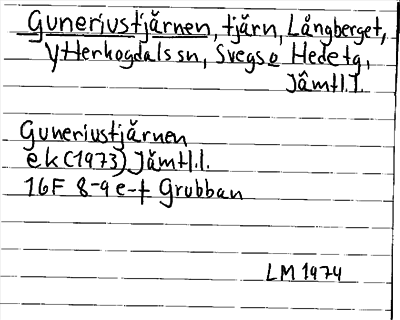 Guneriustjärnen, tjärn, Långberget,
Ytterhogdals sn, Svegs o Hede tg,
Jämtl.l.
Guneriustjärnen
ek (1973) Jämtl.l.
16F 8-9 e-f Grubban
LM 1974